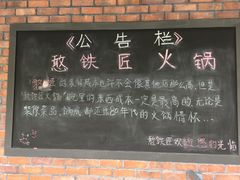 《公告栏》
憨铁匠火锅
憨匠的装修成本也许不会像其他店那么高,但是
"憨铁匠火锅"锅里的东西成本一定是最高的,无论是
菜品、锅底,都还原80年代的火锅情怀…
憨铁匠欢迎您的光临